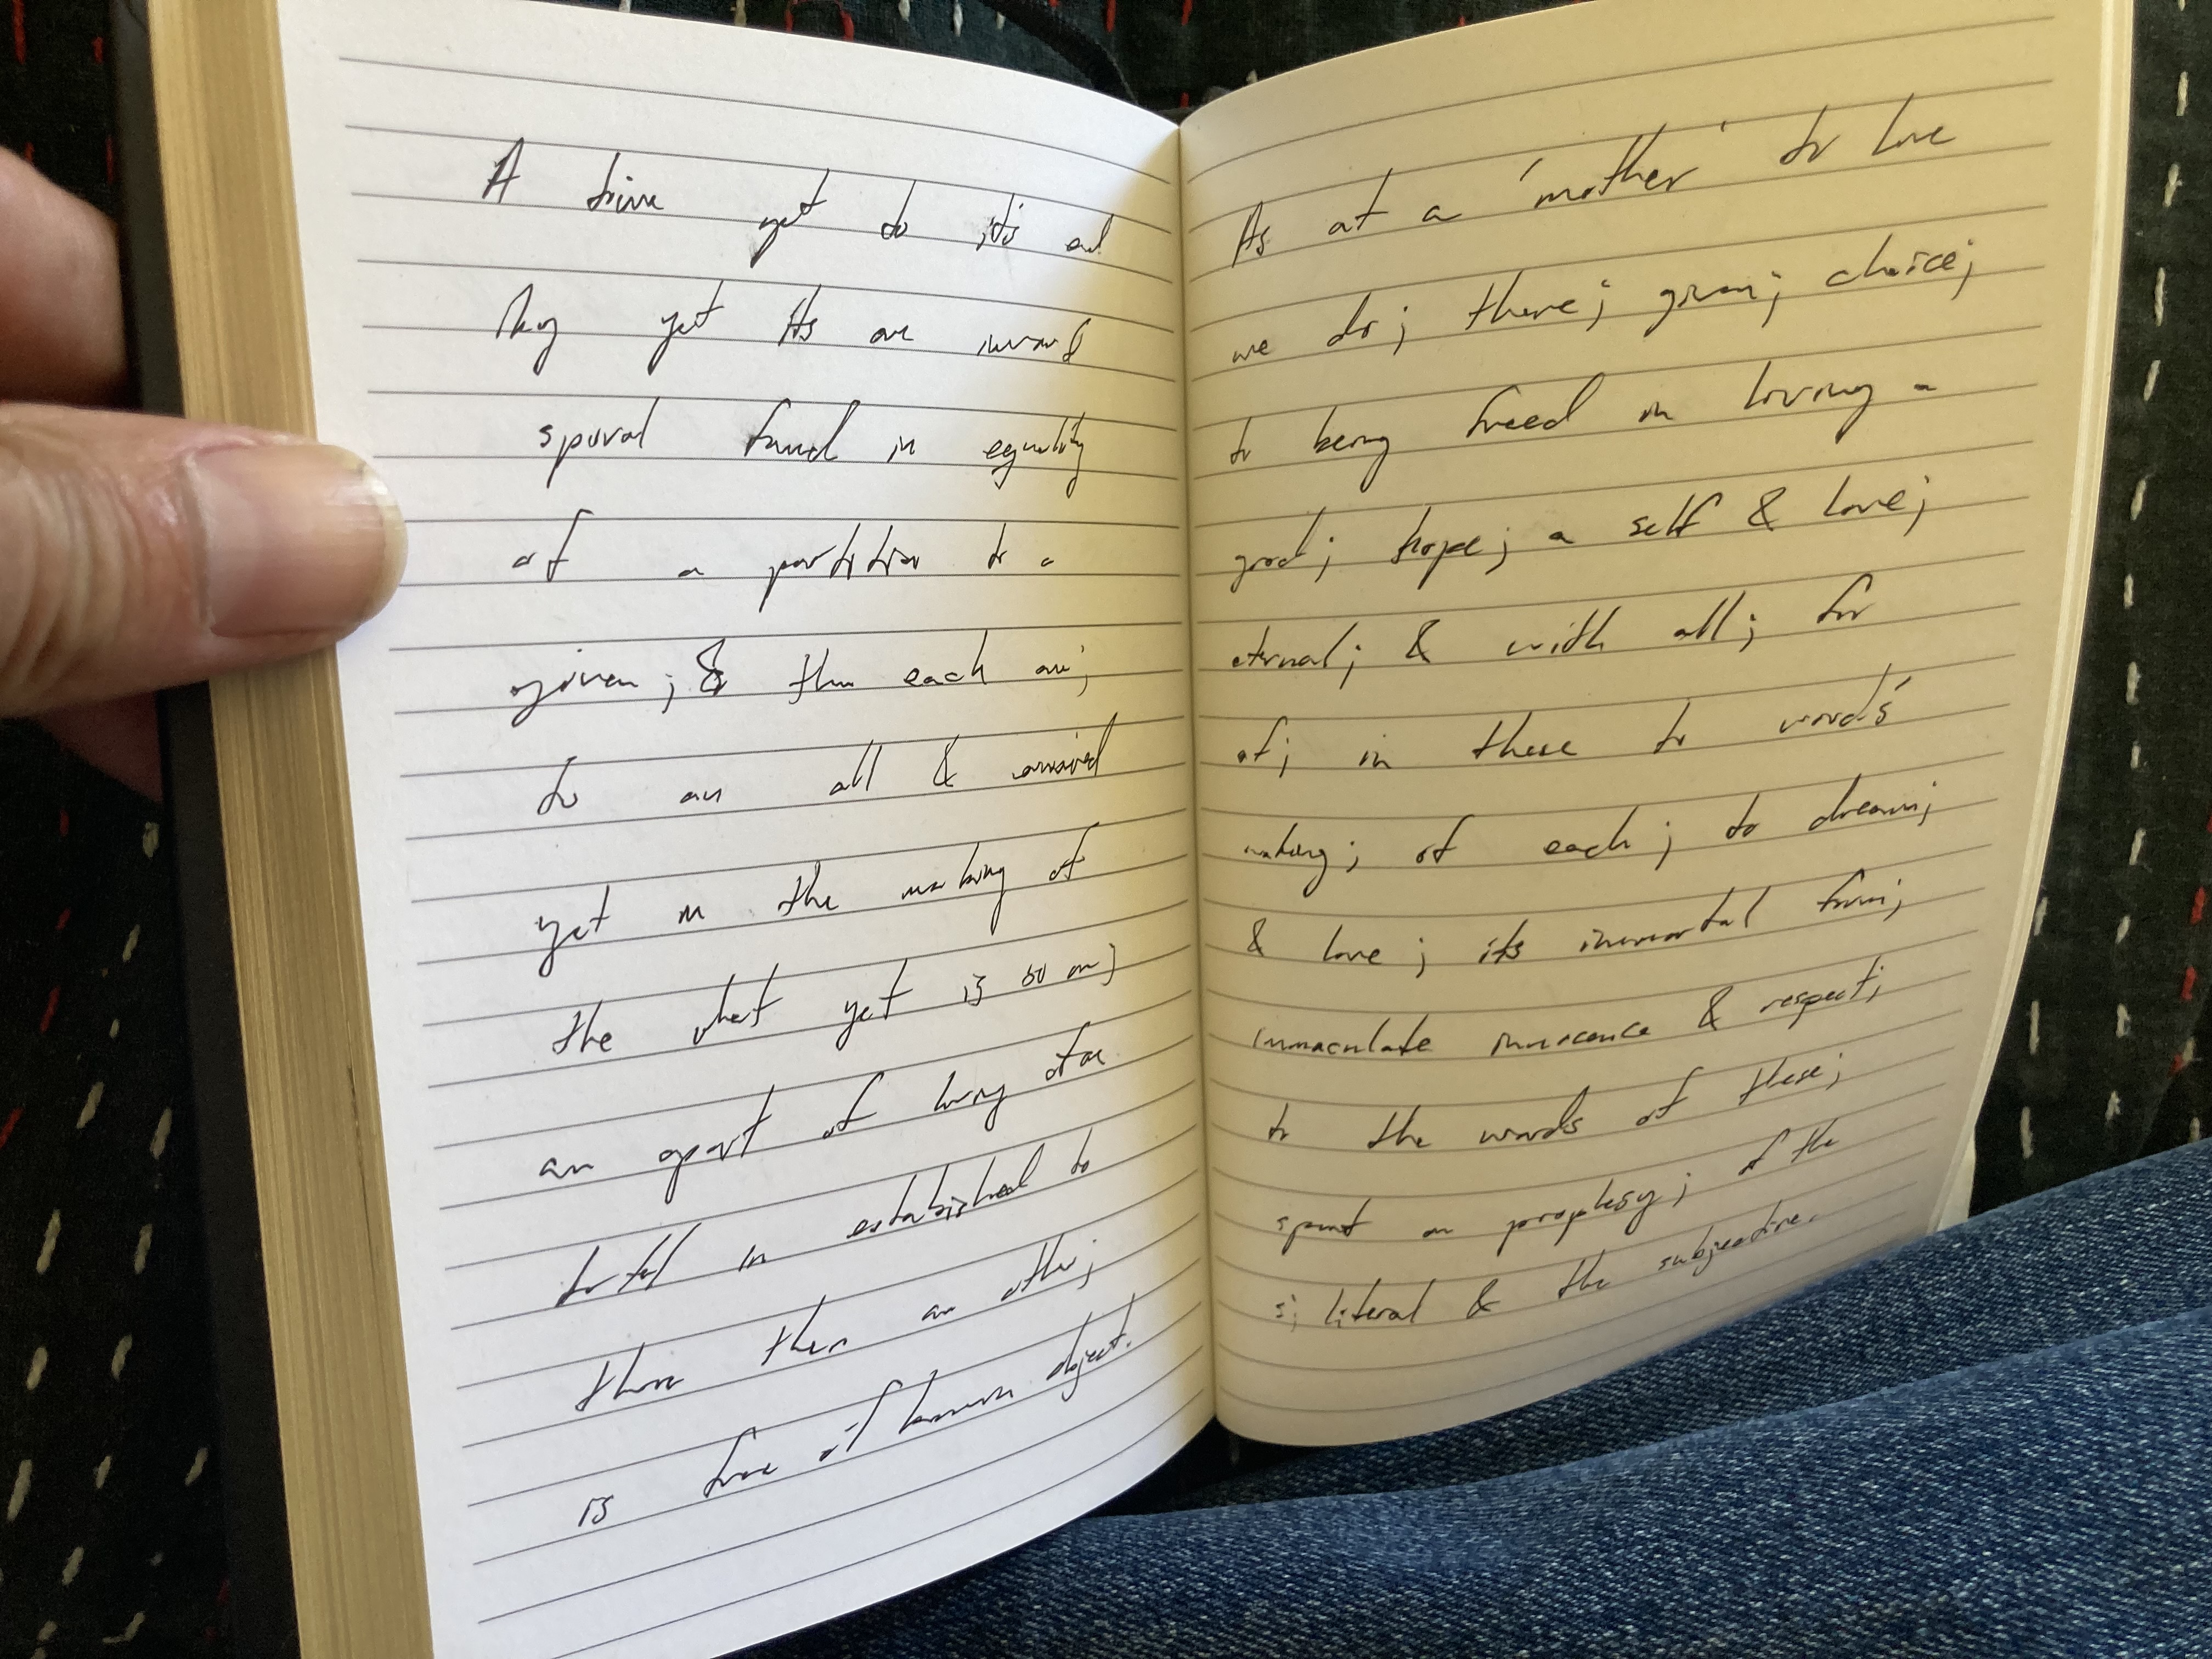 A time yet to it's end
They yet As an inward
spiral found in equality
of a partition to a
given; & then each an;
to an all & arrived
yet in the making of
the what yet is so on;
an apart of living of an
total in established to
those then an other;
is true of known object.
As at a 'mother' to love
we do; there; given; choice;
to being freed in loving a
good; hope; a self & love;
eternal; & with all; for
of; in these to words'
making; of each; to dream;
& love; its immortal form;
immaculate innocence & respect;
to the words of these;
spirit on prophesy; of the
s; literal & the subjective.